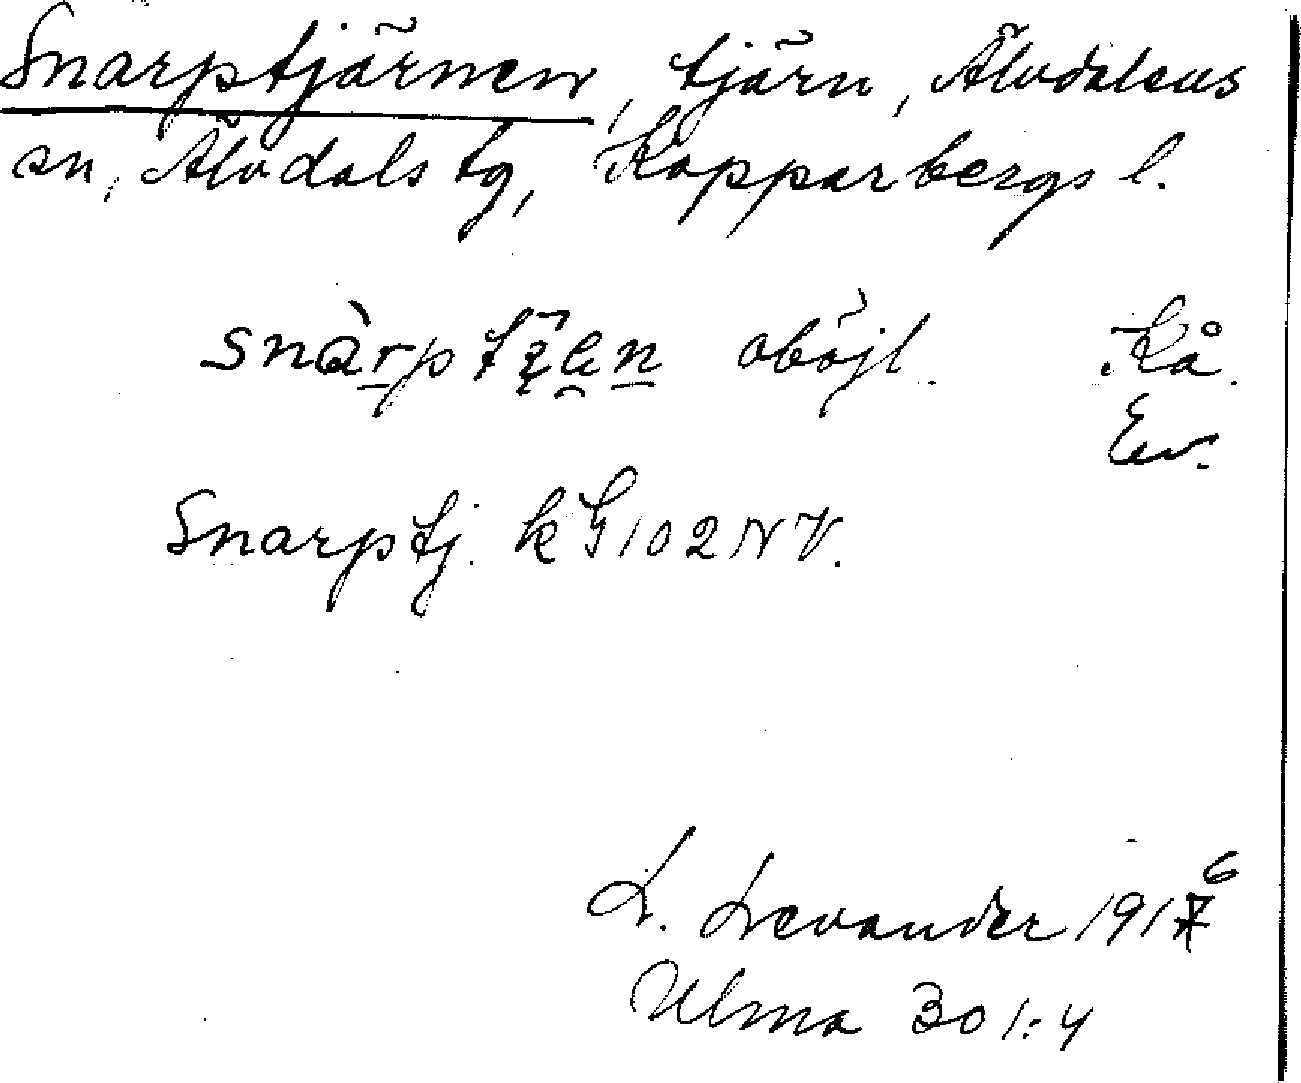 Snarptjärnen, tjärn, Älvdalens
sn, Älvdals tg, Kopparbergs l.
oböjl. Kå.
Ev.
Snarptj. k G 102 NV.
L. Levander 1916
Ulma 301:4